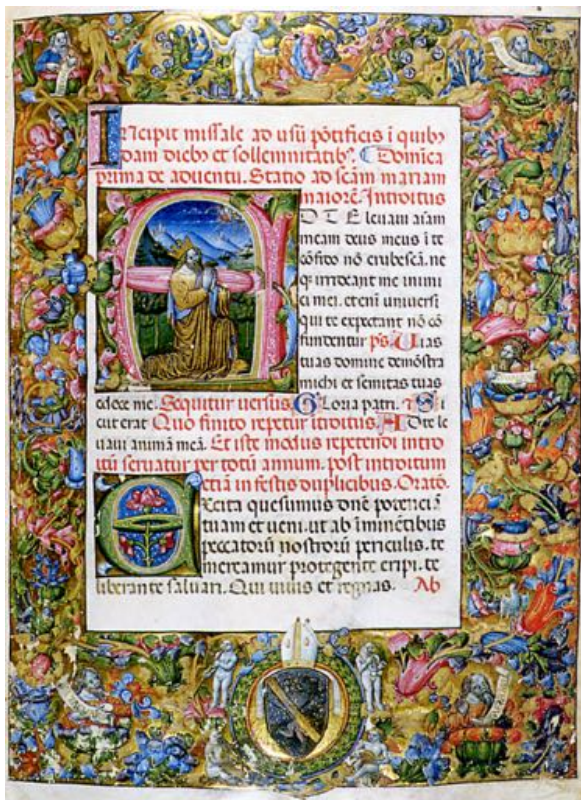 Incipit missale ad usū pōtificis ī quibꝫ
dam diebꝫ et sollemnitatibꝫ. Domīca
prima de aduentu. Statio ad scām mariam
maiorē. Introitus
D TE leuaui aīam
meam deus meus ī te
cōfido nō erubescā. ne
qꝫ irrideant me inimi
ci mei. etenī uniuersi
qui te expectant nō cō
fundentur ps. Uias
tuas domine demōstra
michi et semitas tuas
edoce me. Sequitur uersus. Gloria patri. Si
cut erat Quo finito repetur itroitus. A Dte le
uaui animā meā. Et iste modus repetendi intro
itū seruatur per totū annum. post introitum
etiā in festis duplicibus. Oratō.
Excita quesumus dn̄e potenciā
tuam et ueni. ut ab īminētibus
peccatorū nostrorū periculis. te
mereamur protegente eripi. te
liberante saluari. Qui uiuis et regnas. Ab